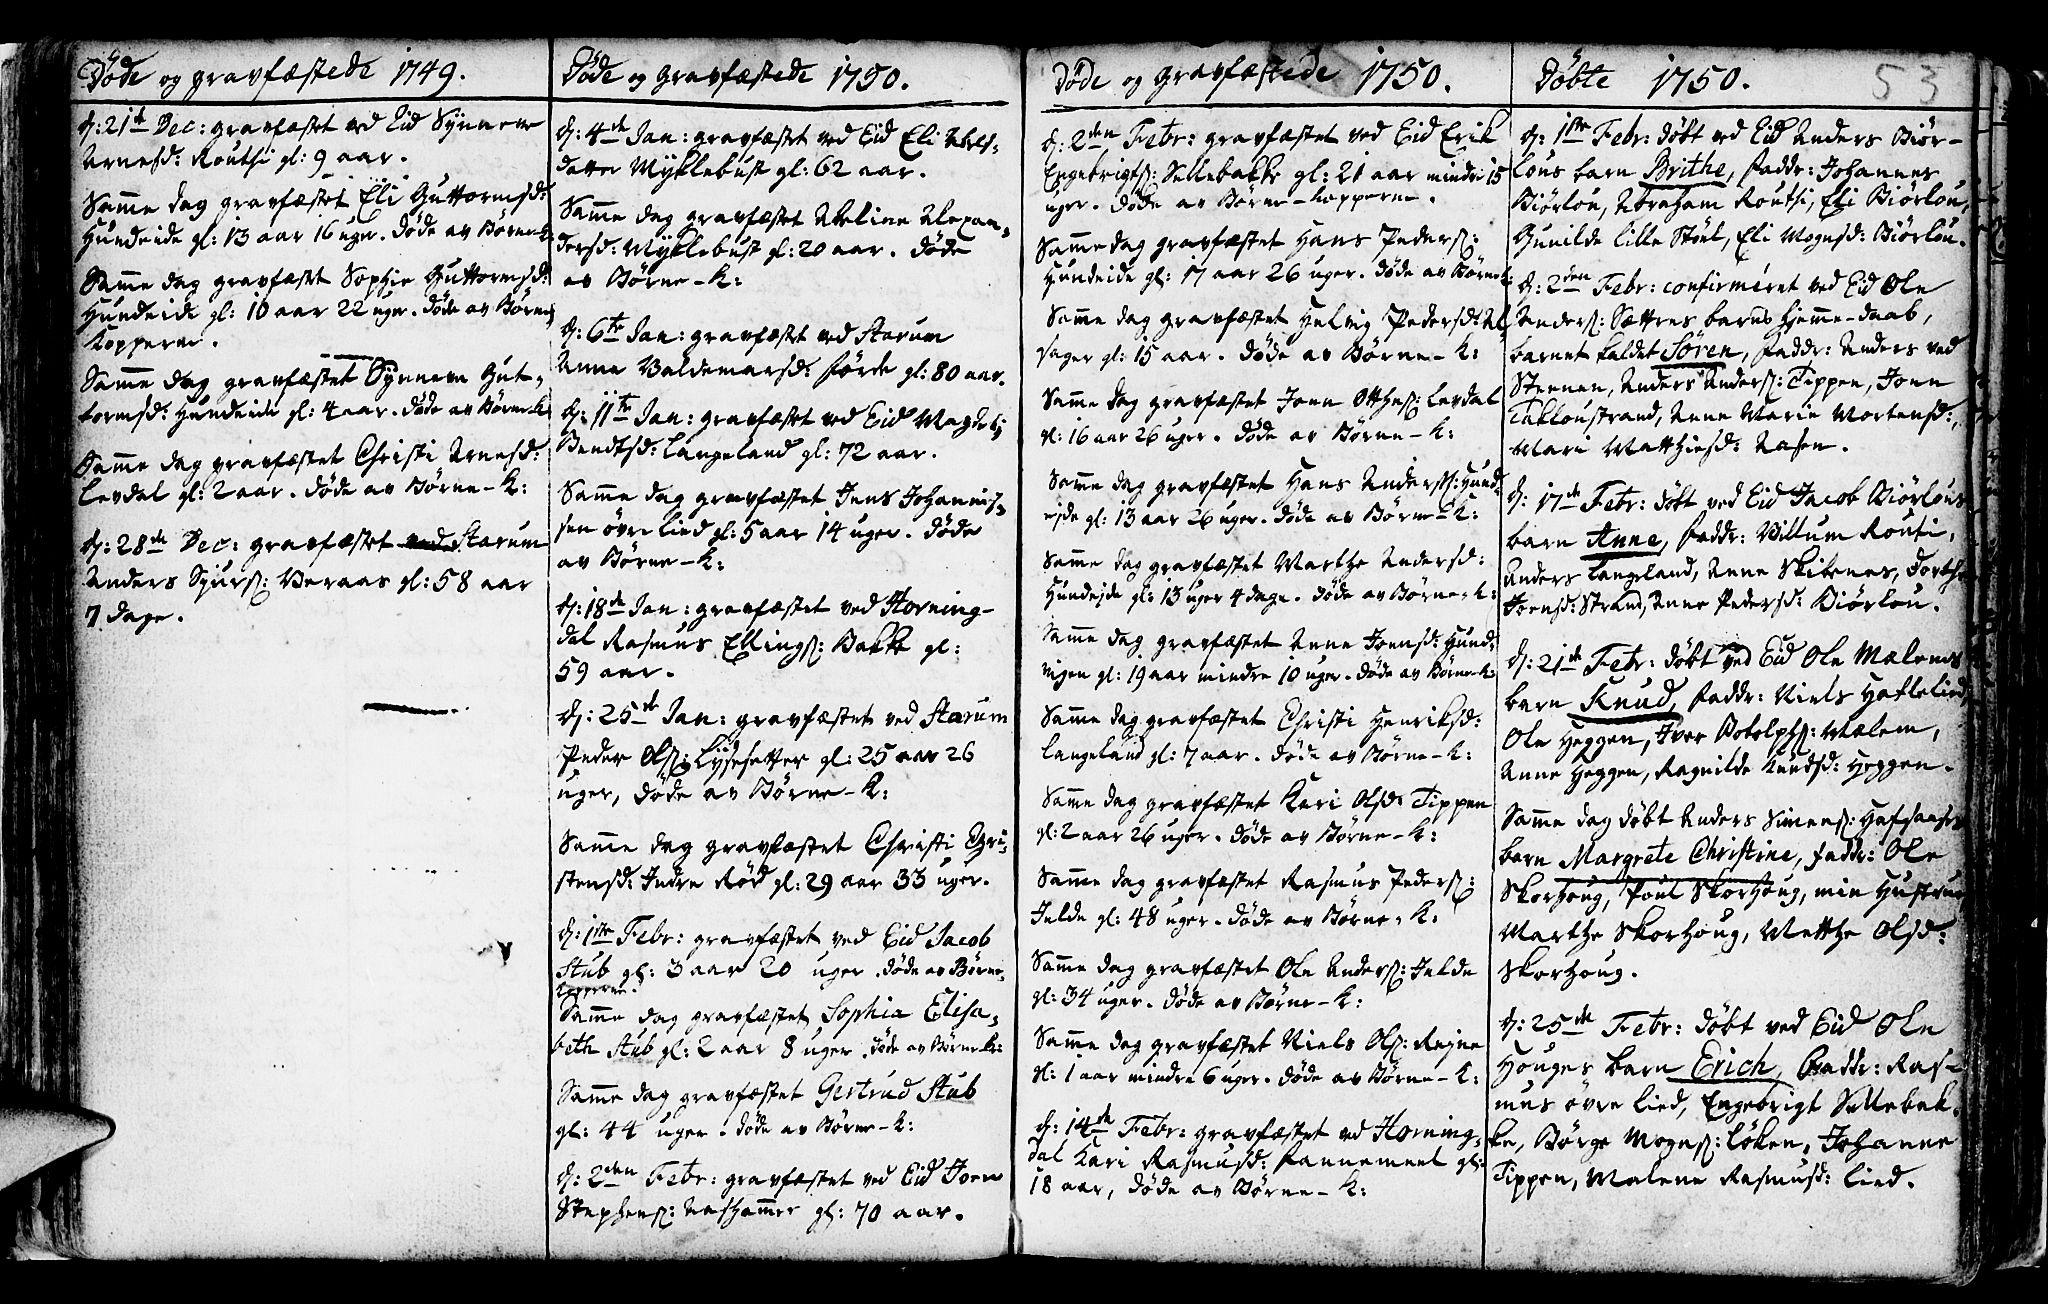 Døde og gravfæstede 1749.
d: 21de Dec: gravfæstet ved Eid Synneve
Arnesd: Routhi gl: 9 aar.
Samme dag gravfæstet Eli Guttormsd:
Hundeide gl: 13 aar 16 uger. døde av Børne-K:
Samme dag gravfæstet Sophie Guttormsd:
Hundeide gl: 10 aar 22 uger. døde av Børne
Kopperne.
Samme dag gravfæstet Synneve Gut-
tormsd: Hundeide gl: 4 aar. døde av Børne-K:
Samme dag gravfæstet Christi Arnesd:
Levdal gl: 2 aar. døde av Børne-K:
d: 28de Dec: gravfæstet ved Starum
Anders Sjurs: Veraas gl: 58 aar
7 dage.
Døde og gravfæstede 1750.
d: 4de Jan: gravfæstet ved Eid Eli
datter Myklebust gl: 62 aar.
Samme dag gravfæstet Abeline Alexan-
dersd: Myklebust gl: 20 aar. døde
av Børne-K:
d: 6te Jan: gravfæstet ved Starum
Anne Valdemarsd: Førde gl: 80 aar.
d: 11te Jan: gravfæstet ved Eid Magdeli
Bendtsd: Langeland gl: 72 aar.
Samme dag gravfæstet Jens Johannis-
sen øvre lied gl: 5 aar 14 uger. døde
av Børne-K:
d: 18de Jan: gravfæstet ved Horning-
dal Rasmus Ellings: Bakke gl:
59 aar.
d: 25de Jan: gravfæstet ved Starum
Peder Ols: Lysesetter gl: 25 aar 26
uger, døde av Børne-K:
Samme dag gravfæstet Christi Chri-
stensd: Indre Rød gl: 29 aar 33 uger.
d: 1ste Febr: gravfæstet ved Eid Jacob
Stub gl: 3 aar 20 uger. døde av Børne-
kopperne.
Samme dag gravfæstet Sophia Elisa-
beth Stub gl: 2 aar 8 uger. døde av Børne-K:
Samme dag gravfæstet Gertrud Stub
gl: 44 uger. døde av Børne-K:
d: 2den Febr: gravfæstet ved Eid Joen
Stephens: Aashammer gl: 70 aar.
Døde og gravfæstede 1750.
d: 2den Febr: gravfæstet ved Eid Erik
Engebrigts: Sellebakke gl: 21 aar mindre 15
uger. døde av Børne-kopperne.
Samme dag gravfæstet Hans Peders:
Hundeide gl: 17 aar 26 uger. døde av Børne-K:
Samme dag gravfæstet Helvig Pedersd:
gl: 15 aar. døde av Børne-K:
Samme dag gravfæstet Joen Otthes: Levdal
gl: 16 aar 26 uger. døde av Børne-K:
Samme dag gravfæstet Hans Anders: Hund-
ejde gl: 13 aar 26 uger. døde av Børne-K:
Samme dag gravfæstet Marthe Andersd:
Hundejde gl: 13 uger 4 dage. døde av Børne-K:
Samme dag gravfæstet Anne Joensd: Hund-
vigen gl: 19 aar mindre 10 uger. døde av Børne-K:
Samme dag gravfæstet Christi Henriksd:
Langeland gl: 7 aar. døde av Børne-K:
Samme dag gravfæstet Kari Olsd: Tippen
gl: 2 aar 26 uger. døde av Børne-K:
Samme dag gravfæstet Rasmus Peders:
Jelde gl: 48 uger. døde av Børne-K:
Samme dag gravfæstet Ole Anders: Jelde
gl: 34 uger. døde av Børne-K:
Samme dag gravfæstet Niels Ols:
gl: 1 aar mindre 6 uger. døde av Børne-K:
d: 14de Febr: gravfæstet ved Horning-
dal Kari Rasmusd: gl:
18 aar, døde av Børne-K:
Døbte 1750. 53
d: 1ste Febr: døbt ved Eid Anders Biør-
lous barn Brithe, Faddr: Johannes
Biørlou, Abraham Routhi, Eli Biørlou,
Gunilde lille Støel, Eli Mognsd: Biørlou.
d: 2den Febr: confirmeret ved Eid Ole
Anders: Sættres barns Hjemme-daab,
barnet kaldet Søren, Faddr: Anders ved
Steenen, Anders Anders: Tippen, Joen
Takloustrand, Anne Marie Mortensd:,
Mari Matthiesd: Aasen.
d: 17de Febr: døbt ved Eid Jacob Biørlous
barn Anne, Faddr: Villum Routi,
Anders Langeland, Anne Skibenes, Dorthe
Joensd: Strand, Anne Pedersd: Biørlou.
d: 21de Febr: døbt ved Eid Ole Mælems
barn Knud, Faddr: Niels Haftelied,
Ole Heggen, Iver Botolphs: Mælem,
Anne Heggen, Ragnilde Knudsd: Heggen.
Samme dag døbt Anders Simens:
barn Margrete Christine, Faddr: Ole
Skorhoug, Poul Skorhoug, min Hustrue
Marthe Skorhoug, Mætthe Olsd:
Skorhoug.
d: 25de Febr: døbt ved Eid Ole
Houges barn Erich, Faddr: Ras-
mus øvre lied, Engebrigt Sellebak-
ke, Børge Mogns: Løken, Johanne
Tippen, Malene Rasmusd: lied.